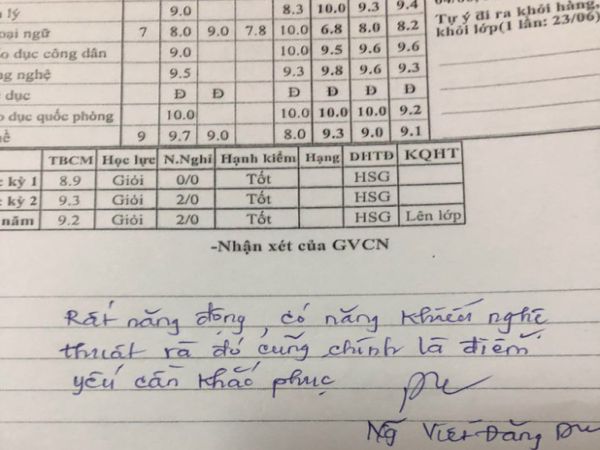 lý 9.0 8.3 10.0 9.3 9.4
oại ngữ 7 8.0 9.0 7.8 10.0 6.8 8.0 8.2
o dục công dân 9.0 10.0 9.5 9.6 9.6
ng nghệ 9.5 9.3 9.8 9.6 9.3
dục Đ Đ Đ Đ Đ Đ
o dục quốc phòng 10.0 10.0 10.0 10.0 9.2
ề 9 9.7 9.0 8.0 9.3 9.0 9.1
Tự ý đi ra khỏi hàng,
khỏi lớp(1 lần: 23/06)
TBCM Học lực N.Nghỉ Hạnh kiểm Hạng DHTĐ KQHT
c kỳ 1 8.9 Giỏi 0/0 Tốt HSG
c kỳ 2 9.3 Giỏi 2/0 Tốt HSG
năm 9.2 Giỏi 2/0 Tốt HSG Lên lớp
-Nhận xét của GVCN
Rất năng động, có năng khiếu nghệ
thuật và đó cũng chính là điểm
yếu cần khắc phục
Ng Viết Đăng Du